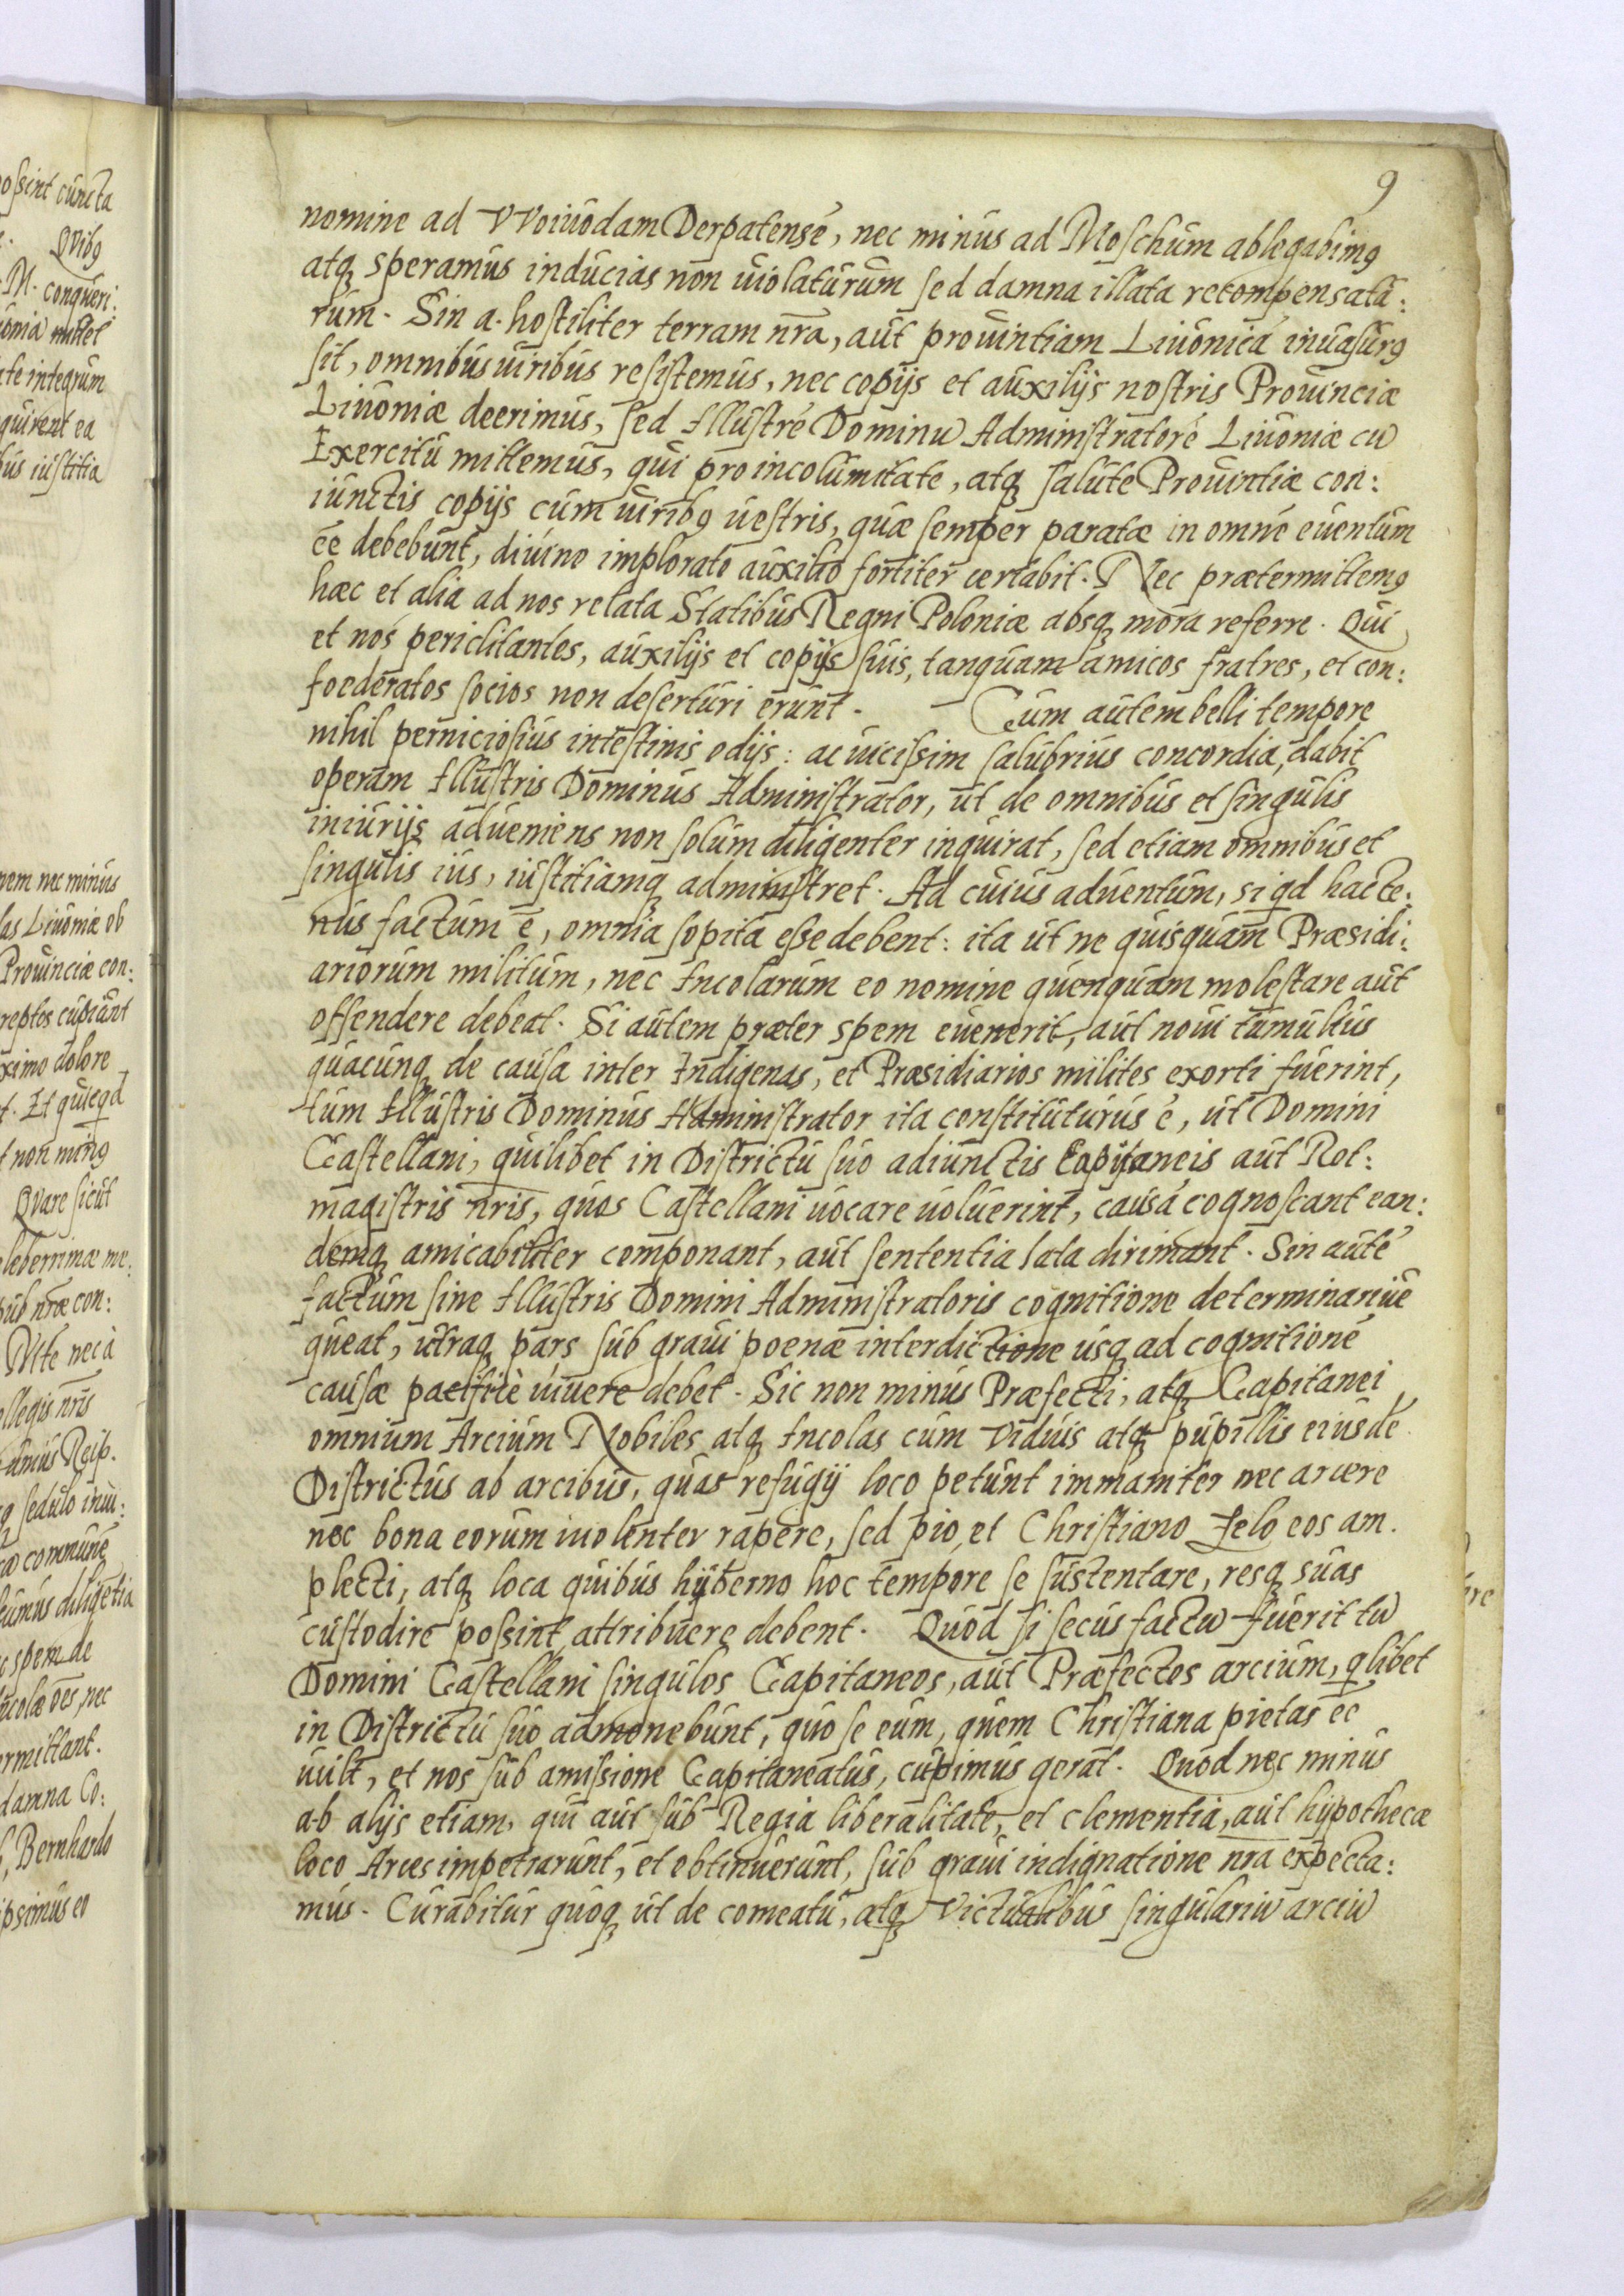 9
nomine ad VVoiuodam Derpatensé, nec minus ad Moschum ablegabimꝰ
atꝗ speramus inducias non uiolaturum sed damna illata recompensatu:
rum. Sin a. hostiliter terram nr̄a, aut prouintiam Liuonicá inuasurꝰ
sit, omnibus uiribus resistemus, nec copijs et auxilijs nostris Prouinciæ
Liuoniæ deerimus, sed Illustré Dominū Administratoré Liuoniæ cū
Exercitū mittemus, qui pro incolumitate, atꝗ salute Prouintiæ con:
iunctis copijs cum uiribꝰ uestris, quæ semper paratæ in omné euentum
ēē debebunt, diuino implorato auxilio fortiter certabit. Nec prætermittemꝰ
hæc et alia ad nos relata Statibus Regni Poloniæ absꝗ mora referre. Qui
et nos periclitantes, auxilijs et copijs suis, tanquam amicos fratres, et con:
foederatos socios non deserturi erunt. Cum autem belli tempore
nihil perniciosius intestinis odijs: ac uicissim salubrius concordia, dabit
operam Illustris Dominus Administrator, ut de omnibus et singulis
iniurijs adueniens non solum diligenter inquirat, sed etiam omnibus et
singulis ius, iustitiamꝗ administret. Ad cuius aduentum, si qd hacte:
nus factum ē, omnia sopita esse debent: ita ut ne quisquam Præsidi:
ariorum militum, nec Incolarum eo nomine quenquam molestare aut
offendere debeat. Si autem præter spem euenerit, aut noui tumultus
quacunꝗ de causa inter Indigenas, et Præsidiarios milites exorti fuerint,
tum Illustris Dominus Administrator ita constituturus é, ut Domini
Castellani, quilibet in Districtu suo adiunctis Capitaneis aut Rot:
magistris nr̄is, quos Castellani uocare uoluerint, causá cognoscant ean:
demꝗ amicabiliter componant, aut sententia lata dirimant. Sin auté
factum sine Illustris Domini Administratoris cognitione determinari ne
queat, utraꝗ pars sub graui poenæ interdictione usꝗ ad cognitioné
causæ pacificè uiuere debet. Sic non minus Præfecti, atꝗ Capitanei
omnium Arcium Nobiles atꝗ Incolas cum Viduis atꝗ pupillis eiusdé
Districtus ab arcibus, quas refugij loco petunt immaniter nec arcere
nec bona eorum uiolenter rapere, sed pio et Christiano zelo eos am.
plecti, atꝗ loca quibus hÿberno hoc tempore se sustentare, resꝗ suas
custodire possint attribuere debent. Quod si secus factū fuerit tū
Domini Castellani singulos Capitaneos, aut Præfectos arcium, qlibet
in Districtu suo admonebunt, quo se eum, quem Christiana pietas ēē
uult, et nos sub amissione Capitaneatus, cupimus gerat. Quod nec minus
ab alijs etiam, qui aut sub Regia liberalitate, et clementia, aut hÿpothecæ
loco Arces impetrarunt, et obtinuerunt, sub graui indignatione nr̄a expecta:
mus. Curabitur quoꝗ ut de comeatu, atꝗ Victualibus singulariū arciū